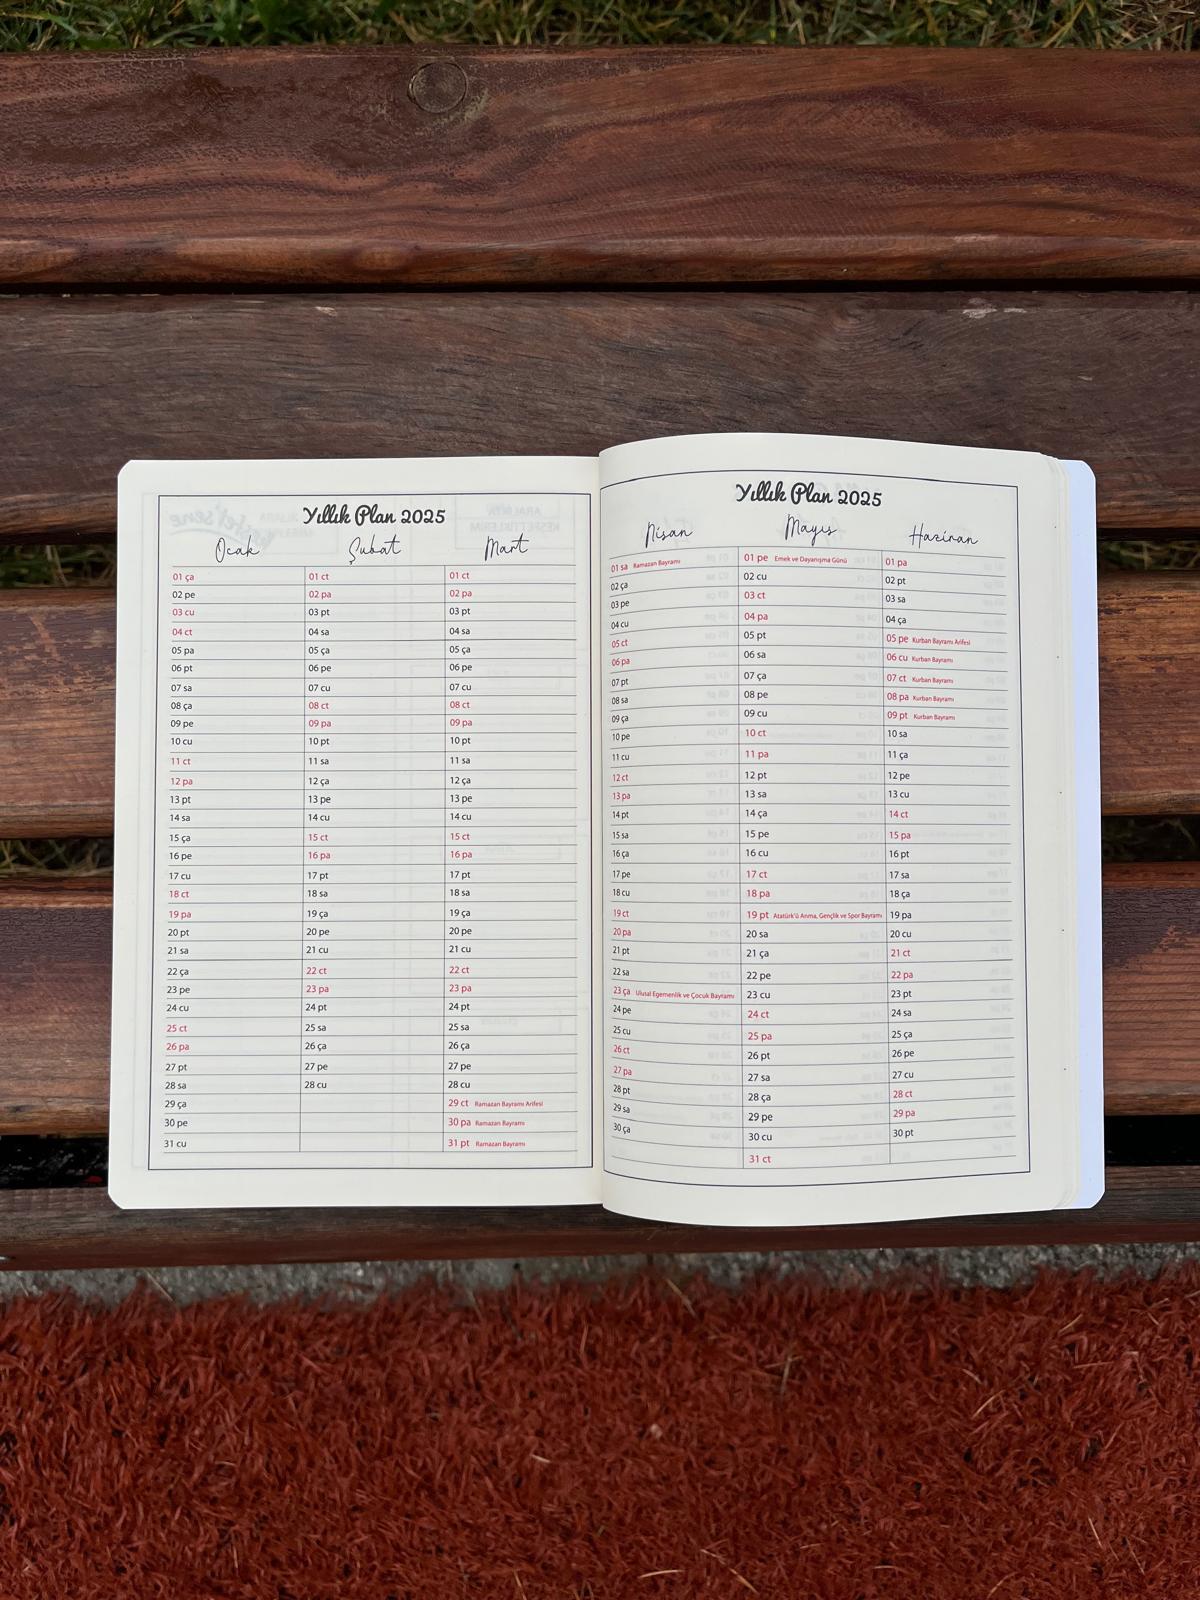 Yıllık Plan 2025
Ocak
01 ça
02 pe
03 cu
04 ct
05 pa
06 pt
07 sa
08 ça
09 pe
10 cu
11 ct
12 pa
13 pt
14 sa
15 ça
16 pe
17 cu
18 ct
19 pa
20 pt
21 sa
22 ça
23 pe
24 cu
25 ct
26 pa
27 pt
28 sa
29 ça
30 pe
31 cu
Şubat
01 ct
02 pa
03 pt
04 sa
05 ça
06 pe
07 cu
08 ct
09 pa
10 pt
11 sa
12 ça
13 pe
14 cu
15 ct
16 pa
17 pt
18 sa
19 ça
20 pe
21 cu
22 ct
23 pa
24 pt
25 sa
26 ça
27 pe
28 cu
Mart
01 ct
02 pa
03 pt
04 sa
05 ça
06 pe
07 cu
08 ct
09 pa
10 pt
11 sa
12 ça
13 pe
14 cu
15 ct
16 pa
17 pt
18 sa
19 ça
20 pe
21 cu
22 ct
23 pa
24 pt
25 sa
26 ça
27 pe
28 cu
29 ct Ramazan Bayramı Arifesi
30 pa Ramazan Bayramı
31 pt Ramazan Bayramı
Yıllık Plan 2025
Nisan
01 sa Ramazan Bayramı
02 ça
03 pe
04 cu
05 ct
06 pa
07 pt
08 sa
09 ça
10 pe
11 cu
12 ct
13 pa
14 pt
15 sa
16 ça
17 pe
18 cu
19 ct
20 pa
21 pt
22 sa
23 ça Ulusal Egemenlik ve Çocuk Bayramı
24 pe
25 cu
26 ct
27 pa
28 pt
29 sa
30 ça
Mayıs
01 pe Emek ve Dayanışma Günü
02 cu
03 ct
04 pa
05 pt
06 sa
07 ça
08 pe
09 cu
10 ct
11 pa
12 pt
13 sa
14 ça
15 pe
16 cu
17 ct
18 pa
19 pt Atatürk'ü Anma, Gençlik ve Spor Bayramı
20 sa
21 ça
22 pe
23 cu
24 ct
25 pa
26 pt
27 sa
28 ça
29 pe
30 cu
31 ct
Haziran
01 pa
02 pt
03 sa
04 ça
05 pe Kurban Bayramı Arifesi
06 cu Kurban Bayramı
07 ct Kurban Bayramı
08 pa Kurban Bayramı
09 pt Kurban Bayramı
10 sa
11 ça
12 pe
13 cu
14 ct
15 pa
16 pt
17 sa
18 ça
19 pa
20 cu
21 ct
22 pa
23 pt
24 sa
25 ça
26 pe
27 cu
28 ct
29 pa
30 pt